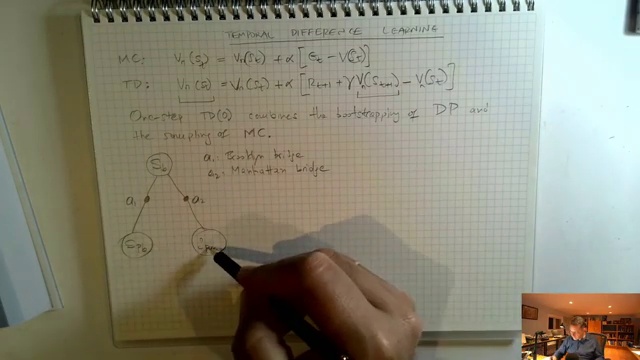 TEMPORAL DIFFERENCE LEARNING
MC: Vπ(St) = Vπ(St) + α [Gt - V(St)]
TD: Vπ(St) = Vπ(St) + α [Rt+1 + γ Vπ(St+1) - Vπ(St)]
One-step TD(0) combines the bootstrapping of DP and
the sampling of MC.
a1: Brooklyn bridge
a2: Manhattan bridge
a1
a2